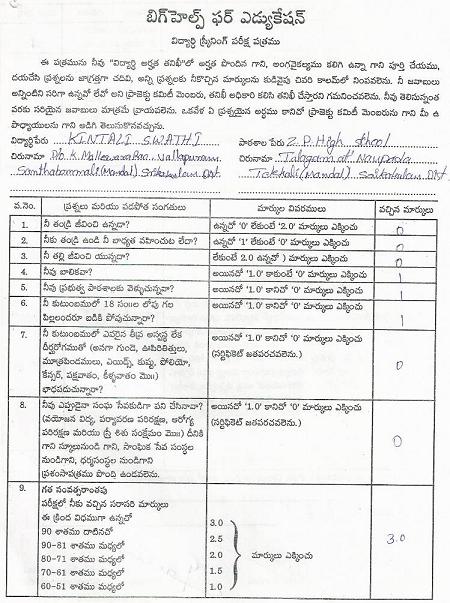 బిగ్‌హెల్ప్ ఫర్ ఎడ్యుకేషన్
విద్యార్థి స్క్రీనింగ్ పరీక్ష పత్రము
ఈ పత్రమును నీవు "విద్యార్థి అర్హత తనిఖీ"లో అర్హత పొందిన గాని, అంగవైకల్యము కలిగి ఉన్నా గాని పూర్తి చేయుము,
దయచేసి ప్రశ్నలను జాగ్రత్తగా చదివి, అన్ని ప్రశ్నలకు నీకొచ్చిన మార్కులను కుడివైపు చివరి కాలమ్‌లో నింపవలెను. నీ జవాబులు
అన్నింటిని సరిగా ఉన్నవో లేవో అని ప్రాజెక్టు కమిటీ మెంబరు, తనిఖీ అధికారి కలిసి తనిఖీ చేస్తారని గమనించవలెను. నీవు తెలిసినంత
వరకు సరియైన జవాబులు మాత్రమే వ్రాయవలెను. ఒకవేళ ఏ ప్రశ్నయైన అర్థము కానిచో ప్రాజెక్టు కమిటీ మెంబరును గాని మీ ఉ
పాధ్యాయులను గాని అడిగి తెలుసుకొనవచ్చును.
విద్యార్థి పేరు KINTALI SWATHI పాఠశాల పేరు Z.P. High school
చిరునామా D/o K. Malleswara Rao, చిరునామా
Santhabommali (Mandal) Srikakulam Dist Tekkali (Mandal) Srikakulam Dist
వ.నెం. ప్రశ్నలు మరియు వడపోత సంగతులు మార్కుల వివరములు వచ్చిన మార్కులు
1. నీ తండ్రి జీవించి ఉన్నడా? ఉన్నచో '0' లేకుంటే '2.0' మార్కులు ఎక్కించు 0
2. నీకు తండ్రి ఉండి నీ బాధ్యత వహించుట లేదా? ఉన్నచో '1' లేకుంటే '0' మార్కులు ఎక్కించు 0
3. నీ తల్లి జీవించి యున్నడా? లేకుంటే 2.0 ఉన్నచో '0' మార్కులు ఎక్కించు 0
4. నీవు బాలికవా? అయినచో '1.0' కాకుంటే '0' మార్కులు ఎక్కించు 1
5. నీవు ప్రభుత్వ పాఠశాలకు వెళ్ళుచున్నవా? అయినచో '1.0' కానిచో '0' మార్కులు ఎక్కించు 1
6. నీ కుటుంబములో 18 సం॥ల లోపు గల అయినచో '1.0' కానిచో '0' మార్కులు ఎక్కించు 1
పిల్లలందరూ బడికి పోవుచున్నారా?
7. నీ కుటుంబములో ఎవరైన తీవ్ర అస్వస్థ లేక అయినచో '1.0' కానిచో '0' మార్కులు ఎక్కించు
దీర్ఘరోగముతో (అనగా గుండె, ఊపిరితిత్తులు, (సర్టిఫికెట్ జతపరచవలెను.)
మూత్రపిండములు, ఎయిడ్స్, కుష్ఠు, పోలియో, 0
కేన్సర్, పక్షవాతం, కీళ్ళవాతం మొ॥)
బాధపడుచున్నారా?
8. నీవు ఎప్పుడైనా సంఘ సేవకుడిగా పని చేసినావా? అయినచో '1.0' కానిచో '0' మార్కులు ఎక్కించు
(వయోజన విద్య, పర్యావరణ పరిరక్షణ, ఆరోగ్య (సర్టిఫికెట్ జతపరచవలెను.)
పరిరక్షణ మరియు స్త్రీ శిశు సంక్షేమం మొ॥) దీనికి 0
గాని స్కూలునుండి గాని, సాంఘిక సేవ సంస్థల
నుండిగాని, ధర్మసంస్థల నుండిగాని
ప్రశంసాపత్రము పొంది ఉండవలెను.
9. గత సంవత్సరాంతపు
పరీక్షలో నీకు వచ్చిన సరాసరి మార్కులు
ఈ క్రింద విధముగా ఉన్నచో 3.0
90 శాతము దాటినచో 2.5 3.0
90-81 శాతము మధ్యలో 2.0 మార్కులు ఎక్కించు
80-71 శాతము మధ్యలో
70-61 శాతము మధ్యలో 1.5
60-51 శాతము మధ్యలో 1.0